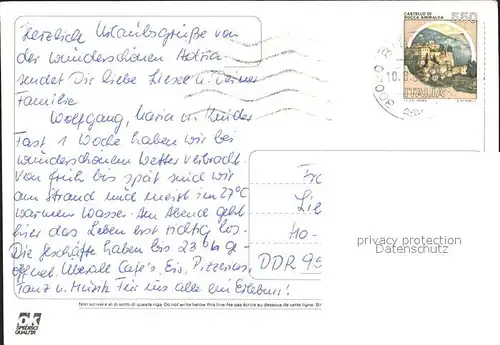 Herzliche Urlaubsgrüße von
der wunderschönen Adria
sendet Dir liebe Liesel u. Deiner
Familie
Wolfgang, Maria u. Kinder
Fast 1 Woche haben wir bei
wunderschönem Wetter verbracht.
Von früh bis spät sind wir
am Strand und meist im 27°C
warmen Wasser. Am Abend geht
hier das Leben erst richtig los.
Die Geschäfte haben bis 23 Uhr ge-
öffnet. Überall Cafe's, Eis, Pizzerias,
Tanz u. Musik. Für uns alle ein Erlebnis!
CASTELLO DI
ROCCA SINIBALDA
550
ITALIA
10.9
Fr
Lie
Ho-
DDR 95
privacy protection
Datenschutz
Non scrivere al di sotto di questa riga. Do not write below this line. Ne pas écrire au dessous de cette ligne.
OK
SPEDISCI
QUALITÀ